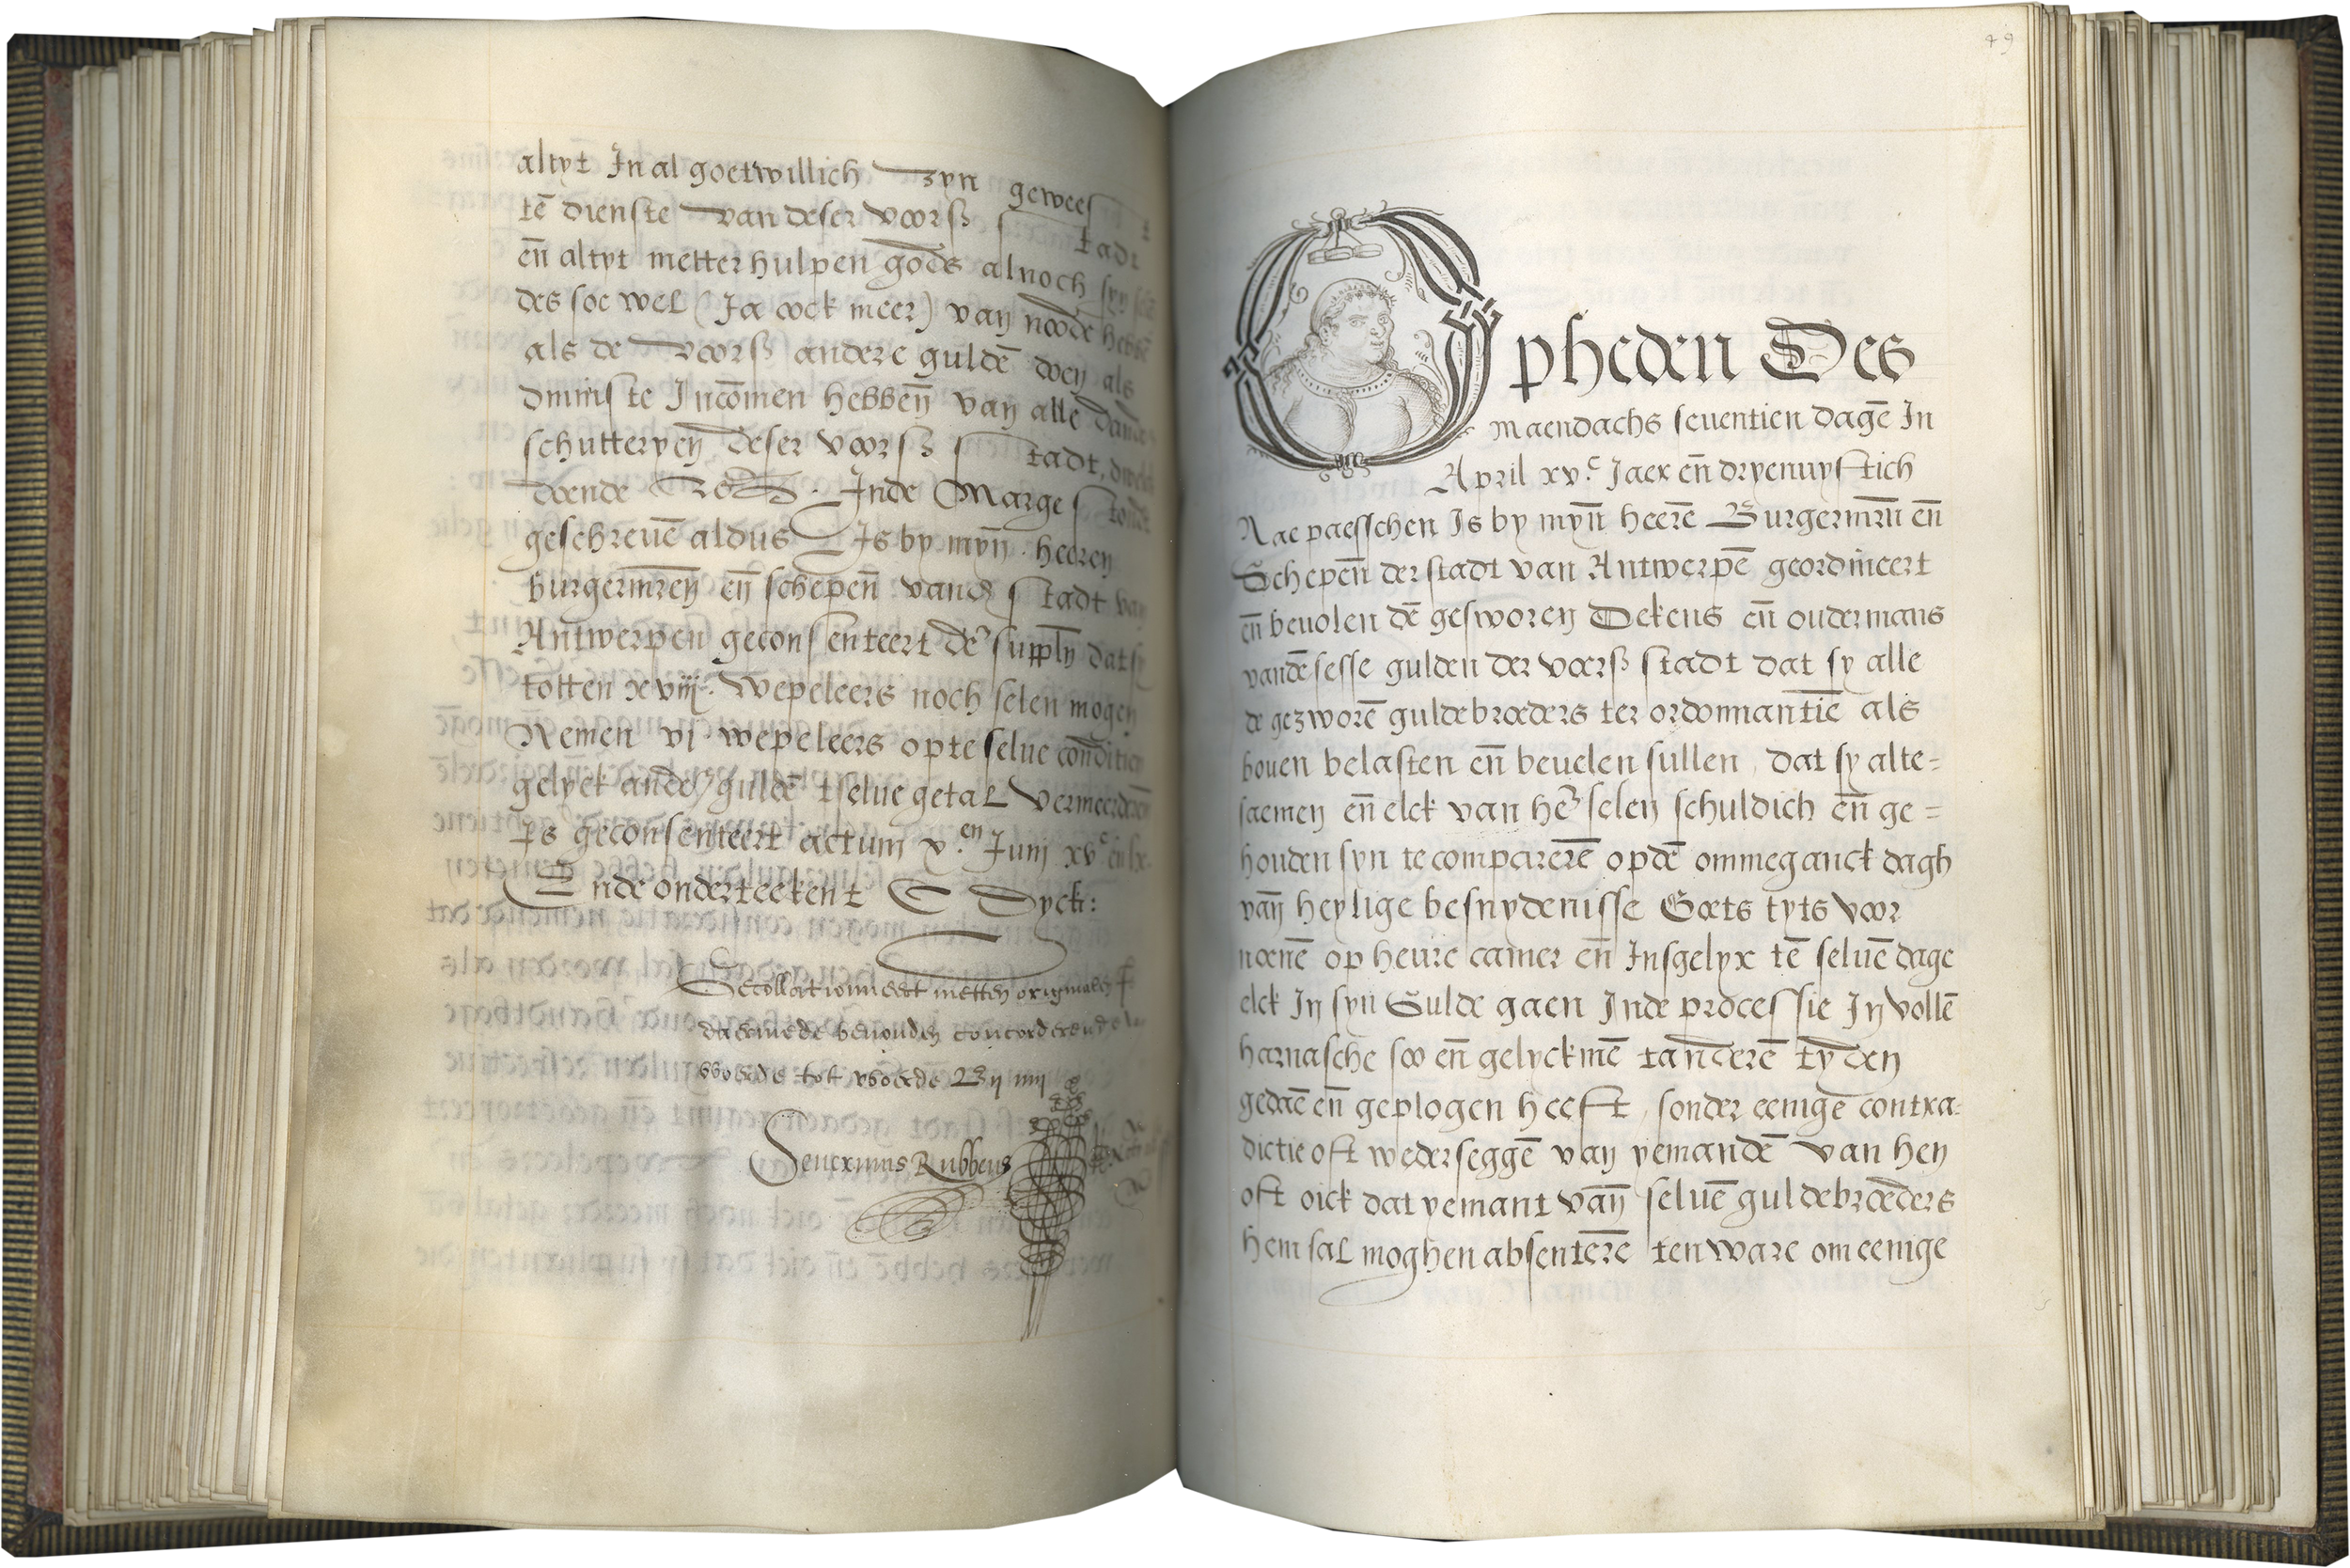 altyt In al goetwillich zyn geweest
tē dienste van deser voorß stadt
en̄ altyt metter hulpen gods alnoch
des soe wel (Ja oock meer) van noode hebbē
als de voorß andere guldē doen als
dminste Incōmen hebben̄ van alle dandere
schutteryen deser voorß stadt,
doende &c. Inde Marge stondt
geschreuē aldus Is by myn̄ heeren
burgermr̄en en̄ schepen̄ vand stadt van
Antwerpen geconsenteert dē suppln̄ dat sy
totten xviijc. wepeleers noch selen mogen
Nemen vj wepeleers opte selue conditien
gelyck andē guldē tselue getal vermeerderen
ps geconsenteert actum v.en Junij xvc
Ende onderteekent C Dyck:
Gecollationneert metten originalen
daermede beuonden concorderende van
woorde tot woorde By my
Seuerinus Rubbens
49
Opheden Des
maendachs seuentien dagē In
April xv.c Jaer en̄ dryenuystich
Nae paesschen Is by myn̄ heerē Burgermrn̄ en̄
Schepen̄ der stadt van Antwerpē geordineert
en̄ beuolen dē gesworen Dekens en̄ oudermans
vandē sesse gulden der voorß stadt dat sy alle
de gezworē guldebroeders ter ordonnantie als
bouen belasten en̄ beuelen sullen, dat sy alte=
saemen en̄ elck van hē selen schuldich en̄ ge=
houden syn te comparerē opdē ommeganck dagh
van̄ heylige besnydenisse Goets tyts voor
noenē op heure camer en̄ Insgelyx tē seluē dage
elck In syn Gulde gaen Inde processie In vollē
harnasche soo en̄ gelyckmē tanderē tyden
gedaē en̄ geplogen heeft, sonder eenigē contra=
dictie oft wederseggē van yemandē van hen
oft oick dat yemant van̄ seluē guldebroeders
hem sal moghen absenterē ten ware om eenige